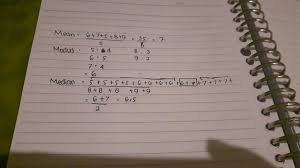 Mean = 6+7+5+8+9 = 35 = 7
5 5
Modus = 5 : 4 8 : 3
6 : 5 9 : 2
7 : 4
= 6
Median = 5+5+5+5+6+6+6+6+6+7+7+7+7
8+8+8 +9+9
= 6+7 = 6,5
2